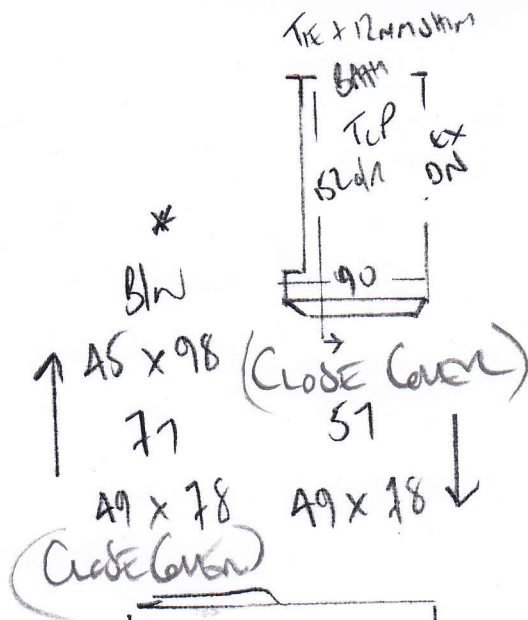 TIE + 12MM SHIM
BATH
TCP
EX
DN
*
B/W
90
45 x 98
(CLOSE COVER)
71
51
49 x 78
49 x 78
(CLOSE COVER)